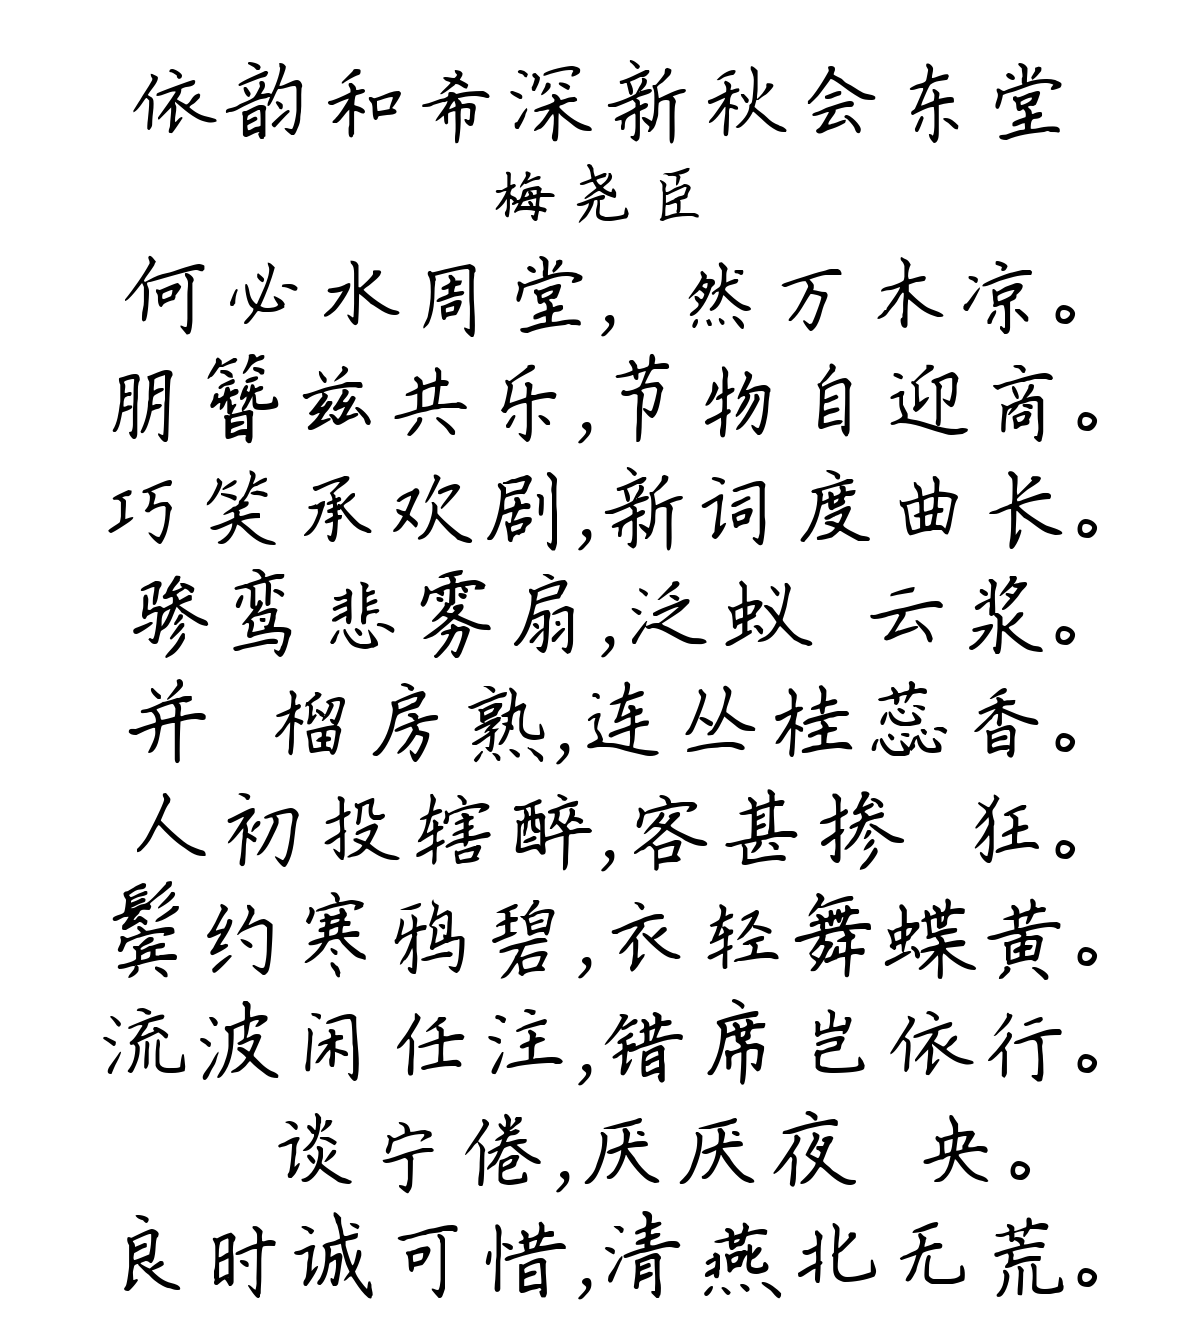 依韵和希深新秋会东堂
梅尧臣
何必水周堂， 然万木凉。
朋簪兹共乐,节物自迎商。
巧笑承欢剧,新词度曲长。
骖鸾悲雾扇,泛蚁 云浆。
并 榴房熟,连丛桂蕊香。
人初投辖醉,客甚掺 狂。
鬓约寒鸦碧,衣轻舞蝶黄。
流波闲任注,错席岂依行。
谈宁倦,厌厌夜 央。
良时诚可惜,清燕北无荒。